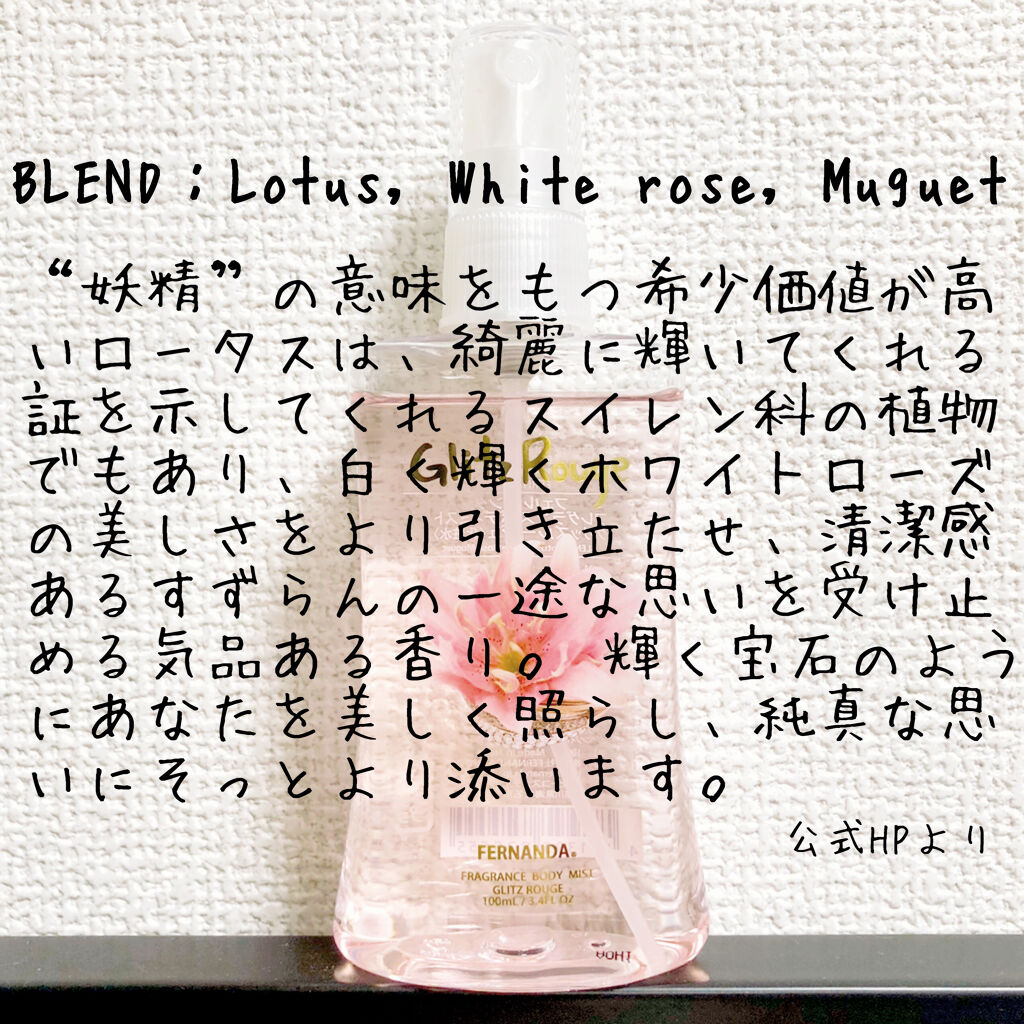 BLEND：Lotus, White rose, Muguet
“妖精”の意味をもつ希少価値が高
いロータスは、綺麗に輝いてくれる
証を示してくれるスイレン科の植物
でもあり、白く輝くホワイトローズ
の美しさをより引き立たせ、清潔感
あるすずらんの一途な思いを受け止
める気品ある香り。 輝く宝石のよう
にあなたを美しく照らし、純真な思
いにそっとより添います。
公式HPより
Glitz Rouge
FERNANDA®
FRAGRANCE BODY MIST
GLITZ ROUGE
100mL / 3.4FL OZ